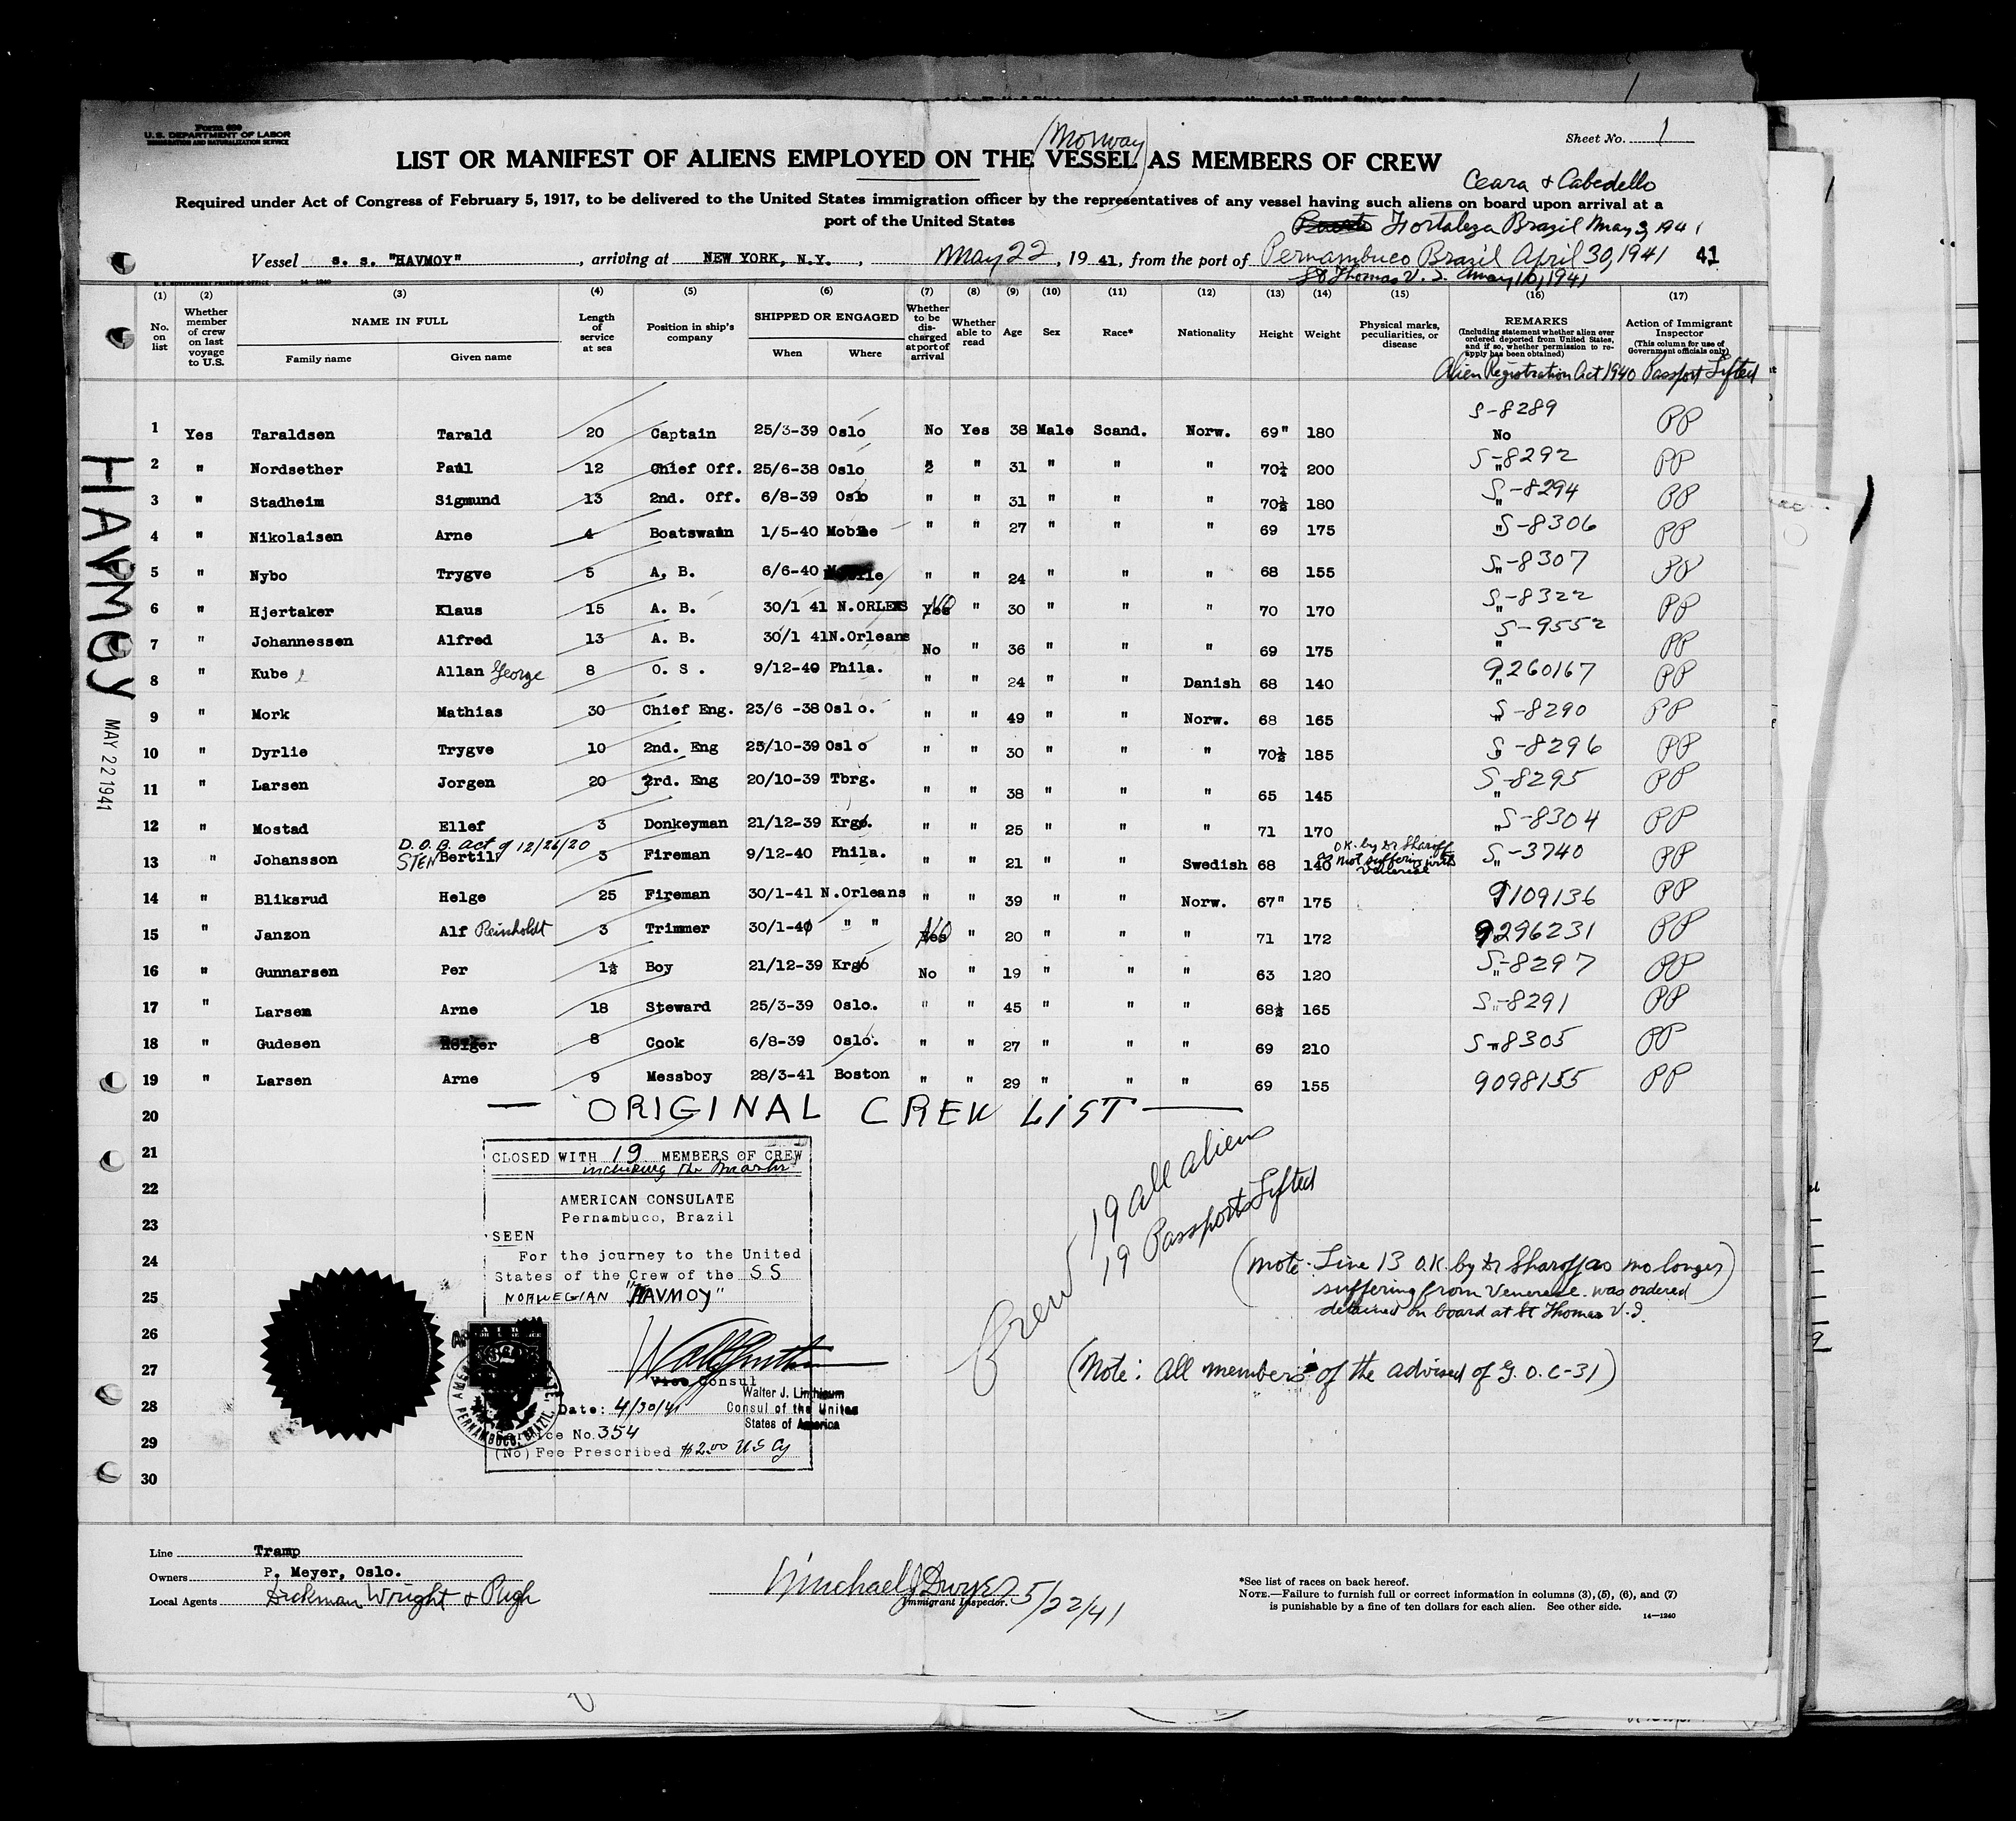 Form 680
U.S. DEPARTMENT OF LABOR
IMMIGRATION AND NATURALIZATION SERVICE
(Norway)
Sheet No. 1
LIST OR MANIFEST OF ALIENS EMPLOYED ON THE VESSEL AS MEMBERS OF CREW
Ceara & Cabedello
Required under Act of Congress of February 5, 1917, to be delivered to the United States immigration officer by the representatives of any vessel having such aliens on board upon arrival at a
port of the United States
Fortaleza Brazil May 3, 1941
Vessel s. s. "HAVMOY", arriving at NEW YORK, N.Y., May 22, 1941, from the port of Pernambuco Brazil April 30, 1941 41
St Thomas V. I. May 10, 1941
(1) (2) (3) (4) (5) (6) (7) (8) (9) (10) (11) (12) (13) (14) (15) (16) (17)
No. on list
Whether member of crew on last voyage to U.S.
NAME IN FULL
Family name Given name
Length of service at sea
Position in ship's company
SHIPPED OR ENGAGED
When Where
Whether to be discharged at port of arrival
Whether able to read
Age
Sex
Race*
Nationality
Height
Weight
Physical marks, peculiarities, or disease
REMARKS
(Including statement whether alien ever ordered deported from United States, and if so, whether permission to reapply has been obtained)
Action of Immigrant Inspector
(This column for use of Government officials only)
Alien Registration Act 1940 Passport Lifted
1 Yes Taraldsen Tarald 20 Captain 25/3-39 Oslo No Yes 38 Male Scand. Norw. 69" 180 S-8289 No PP
2 " Nordsether Paul 12 Chief Off. 25/6-38 Oslo " " 31 " " " 70½ 200 S-8292 " PP
3 " Stadheim Sigmund 13 2nd. Off. 6/8-39 Oslo " " 31 " " " 70½ 180 S-8294 " PP
4 " Nikolaisen Arne 4 Boatswain 1/5-40 Mobile " " 27 " " " 69 175 S-8306 " PP
5 " Nybo Trygve 5 A. B. 6/6-40 " " 24 " " " 68 155 S-8307 " PP
6 " Hjertaker Klaus 15 A. B. 30/1 41 N.ORLENS Yes No " 30 " " " 70 170 S-8322 " PP
7 " Johannessen Alfred 13 A. B. 30/1 41 N.Orleans No " 36 " " " 69 175 S-9552 " PP
8 " Kube Allan George 8 O. S. 9/12-40 Phila. " " 24 " " Danish 68 140 9260167 " PP
9 " Mork Mathias 30 Chief Eng. 23/6 -38 Oslo. " " 49 " " Norw. 68 165 S-8290 " PP
10 " Dyrlie Trygve 10 2nd. Eng 25/10-39 Oslo " " 30 " " " 70½ 185 S-8296 " PP
11 " Larsen Jorgen 20 3rd. Eng 20/10-39 Tbrg. " " 38 " " " 65 145 S-8295 " PP
12 " Mostad Ellef 3 Donkeyman 21/12-39 Krgo. " " 25 " " " 71 170 S-8304 " PP
D.O.B. act. 9 12/26/20
O.K. by Dr Sharoff as not suffering with Venereal
13 " Johansson STEN Bertil 3 Fireman 9/12-40 Phila. " " 21 " " Swedish 68 140 S-3740 " PP
14 " Bliksrud Helge 25 Fireman 30/1-41 N.Orleans " " 39 " " Norw. 67" 175 9109136 PP
15 " Janzon Alf Reinholdt 3 Trimmer 30/1-40 " " Yes No " 20 " " " 71 172 9296231 PP
16 " Gunnarsen Per 1½ Boy 21/12-39 Krgo No " 19 " " " 63 120 S-8297 " PP
17 " Larsen Arne 18 Steward 25/3-39 Oslo. " " 45 " " " 68½ 165 S-8291 " PP
18 " Gudesen 8 Cook 6/8-39 Oslo. " " 27 " " " 69 210 S-8305 " PP
19 " Larsen Arne 9 Messboy 28/3-41 Boston " " 29 " " " 69 155 9098155 PP
20
— ORIGINAL CREW LIST —
21
22
23
24
25
26
27
28
29
30
HAVMOY
MAY 22 1941
CLOSED WITH 19 MEMBERS OF CREW
including the Master
AMERICAN CONSULATE
Pernambuco, Brazil
SEEN
For the journey to the United
States of the Crew of the SS
NORWEGIAN "HAVMOY"
Vice Consul
Walter J. Linthicum
Consul of the United
States of America
Date: 4/30/41
Service No. 354
(No) Fee Prescribed $2.00 US Cy
AMERICAN CONSULATE PERNAMBUCO, BRAZIL
Crew 19 all aliens
19 Passports Lifted
(Note - Line 13 O.K. by Dr Sharoff as no longer
suffering from Venereal. was ordered
detained on board at St Thomas V.I.)
(Note: All members of the advised of G.O. C-31)
Line Tramp
Owners P. Meyer, Oslo.
Local Agents Dickman Wright & Pugh
Michael J Dwyer 5/22/41
Immigrant Inspector.
*See list of races on back hereof.
NOTE.—Failure to furnish full or correct information in columns (3), (5), (6), and (7)
is punishable by a fine of ten dollars for each alien. See other side.
14—1240